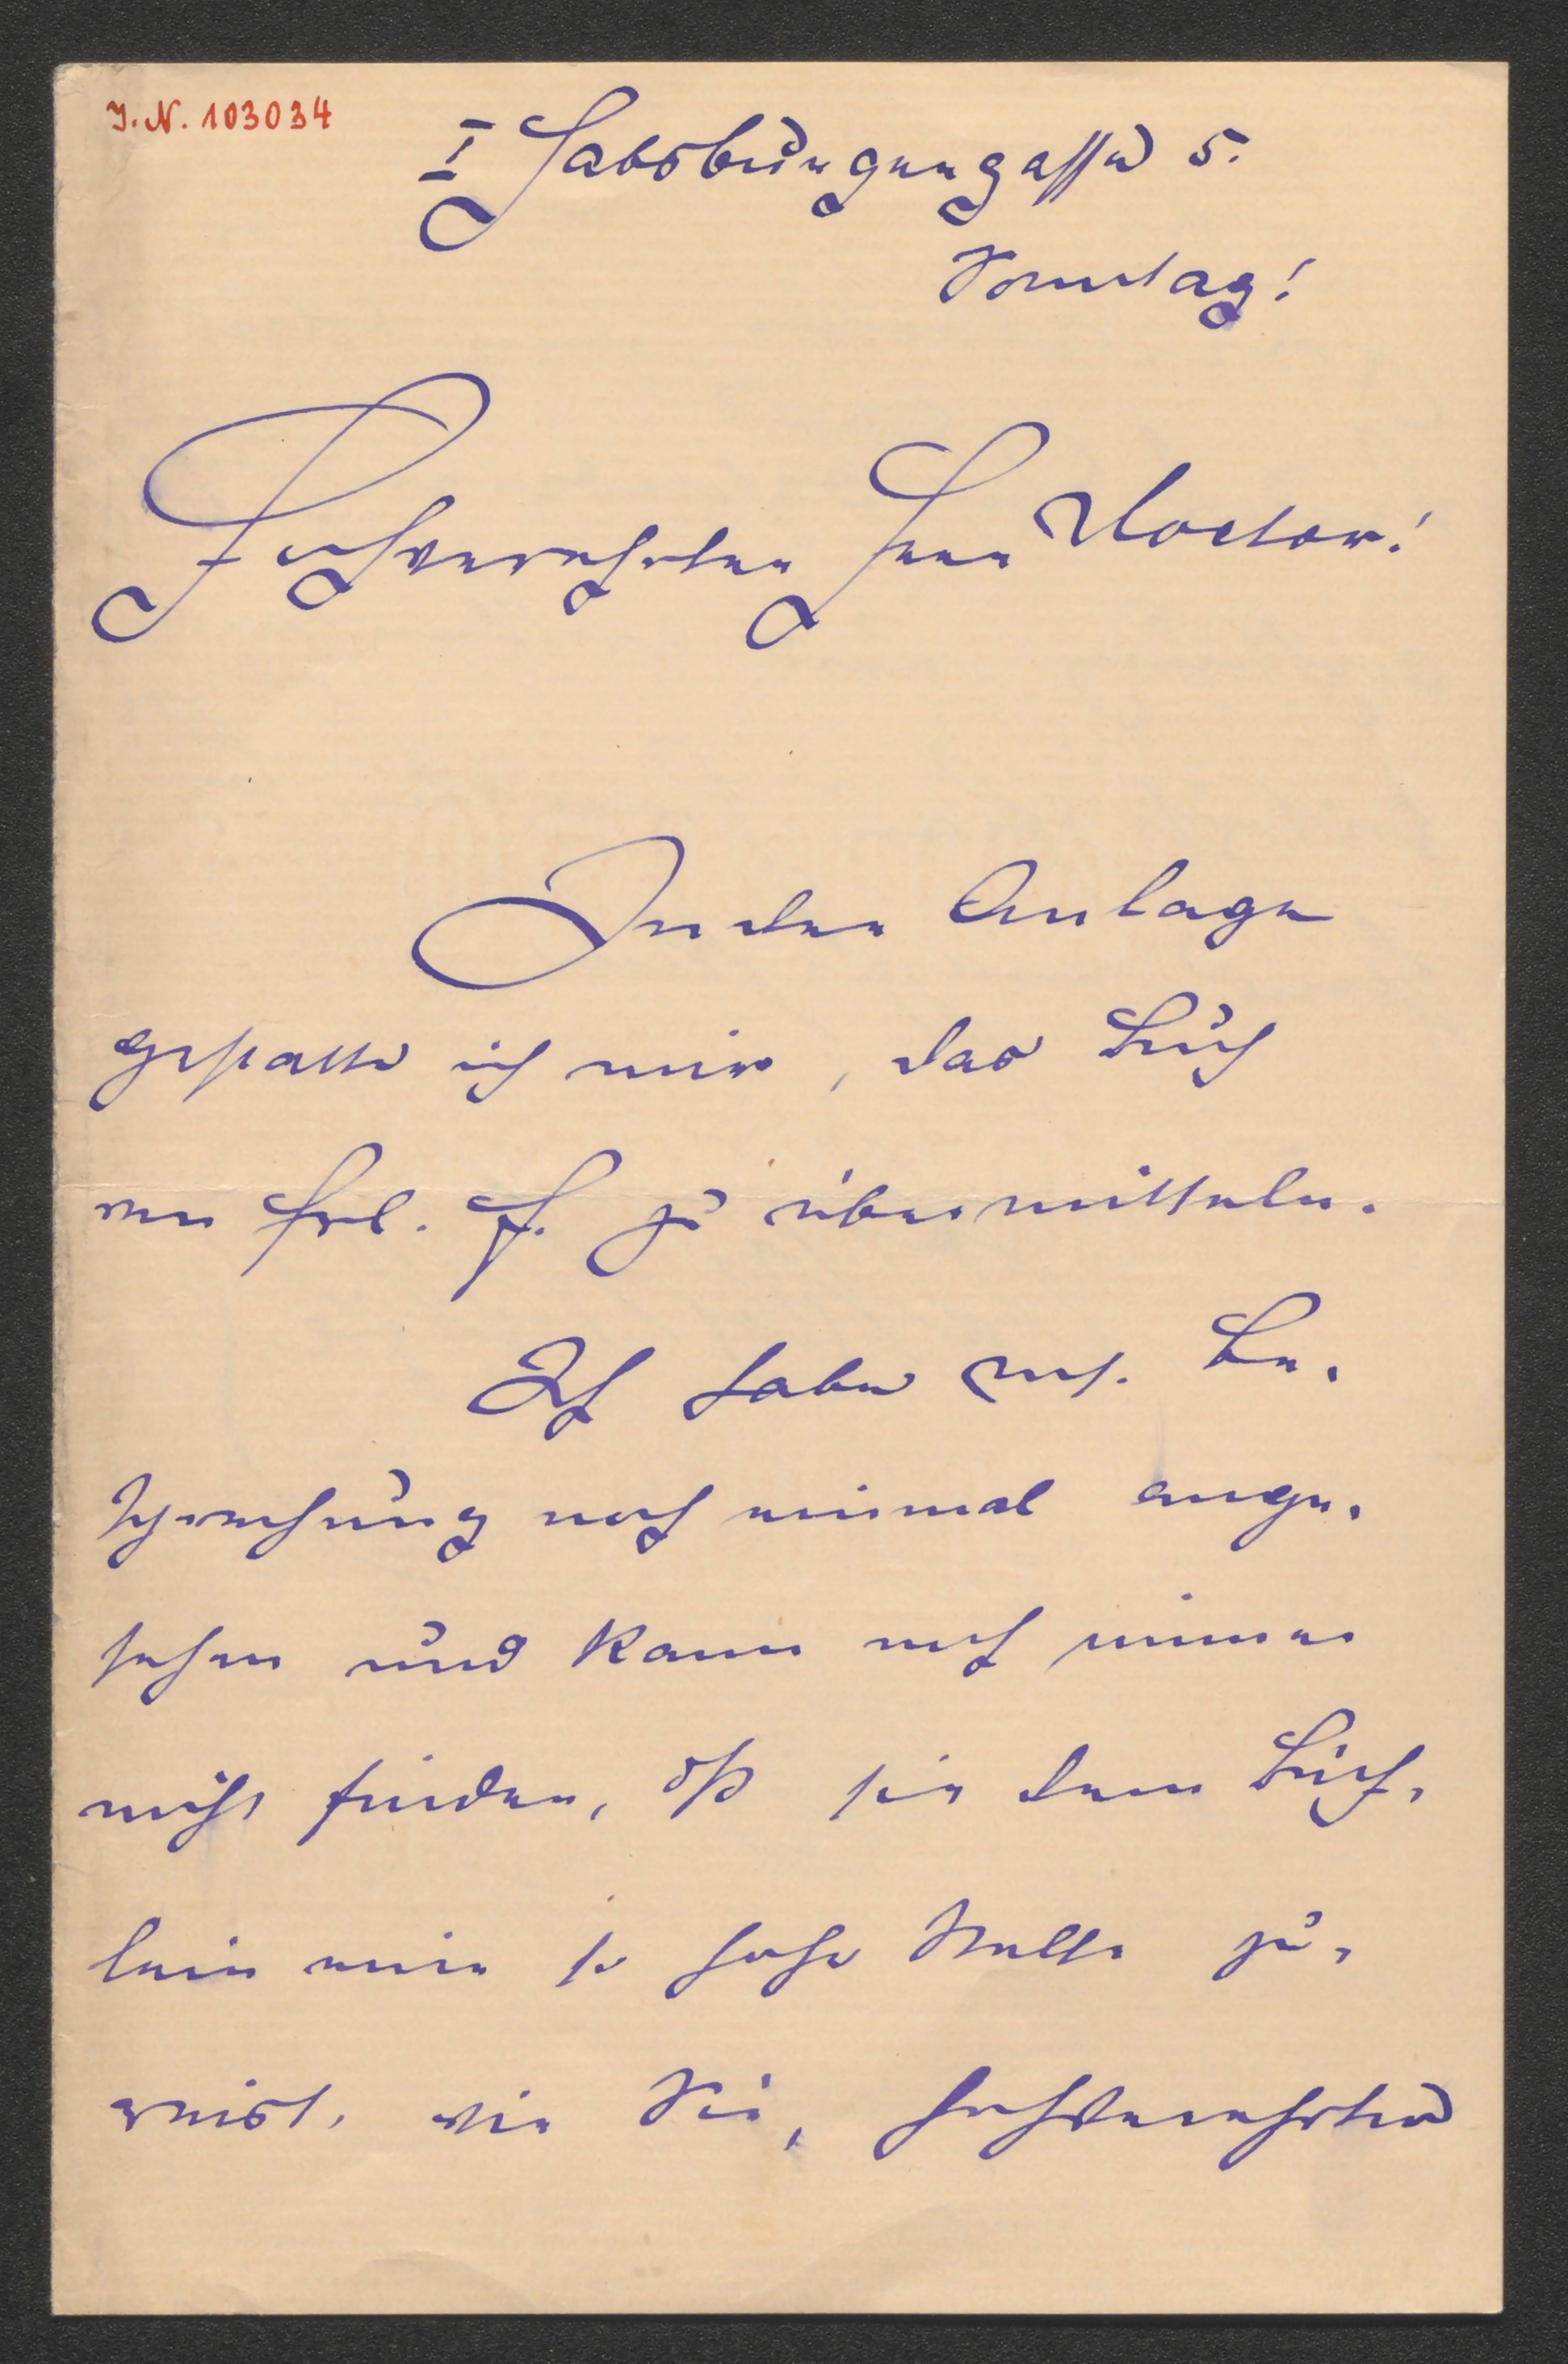 I.N. 103034
I Habsburgergasse 5.
Sonntag!
Hochverehrter Herr Doctor!
In der Anlage
gestatte ich mir, das Buch
von Frl. F. zu übermitteln.
Ich habe m. Be-
sprechung noch einmal ange-
sehen und kann noch immer
nicht finden, dß sie dem Büch-
lein eine so hohe Stelle zu-
weist, die Sie, hochverehrter